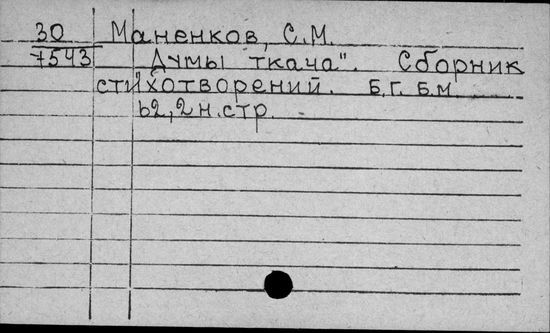 30 Маненков, С.М.
7543 Думы ткача". Сборник
стихотворений. Б.Г. Б.М.
62,2н.стр.